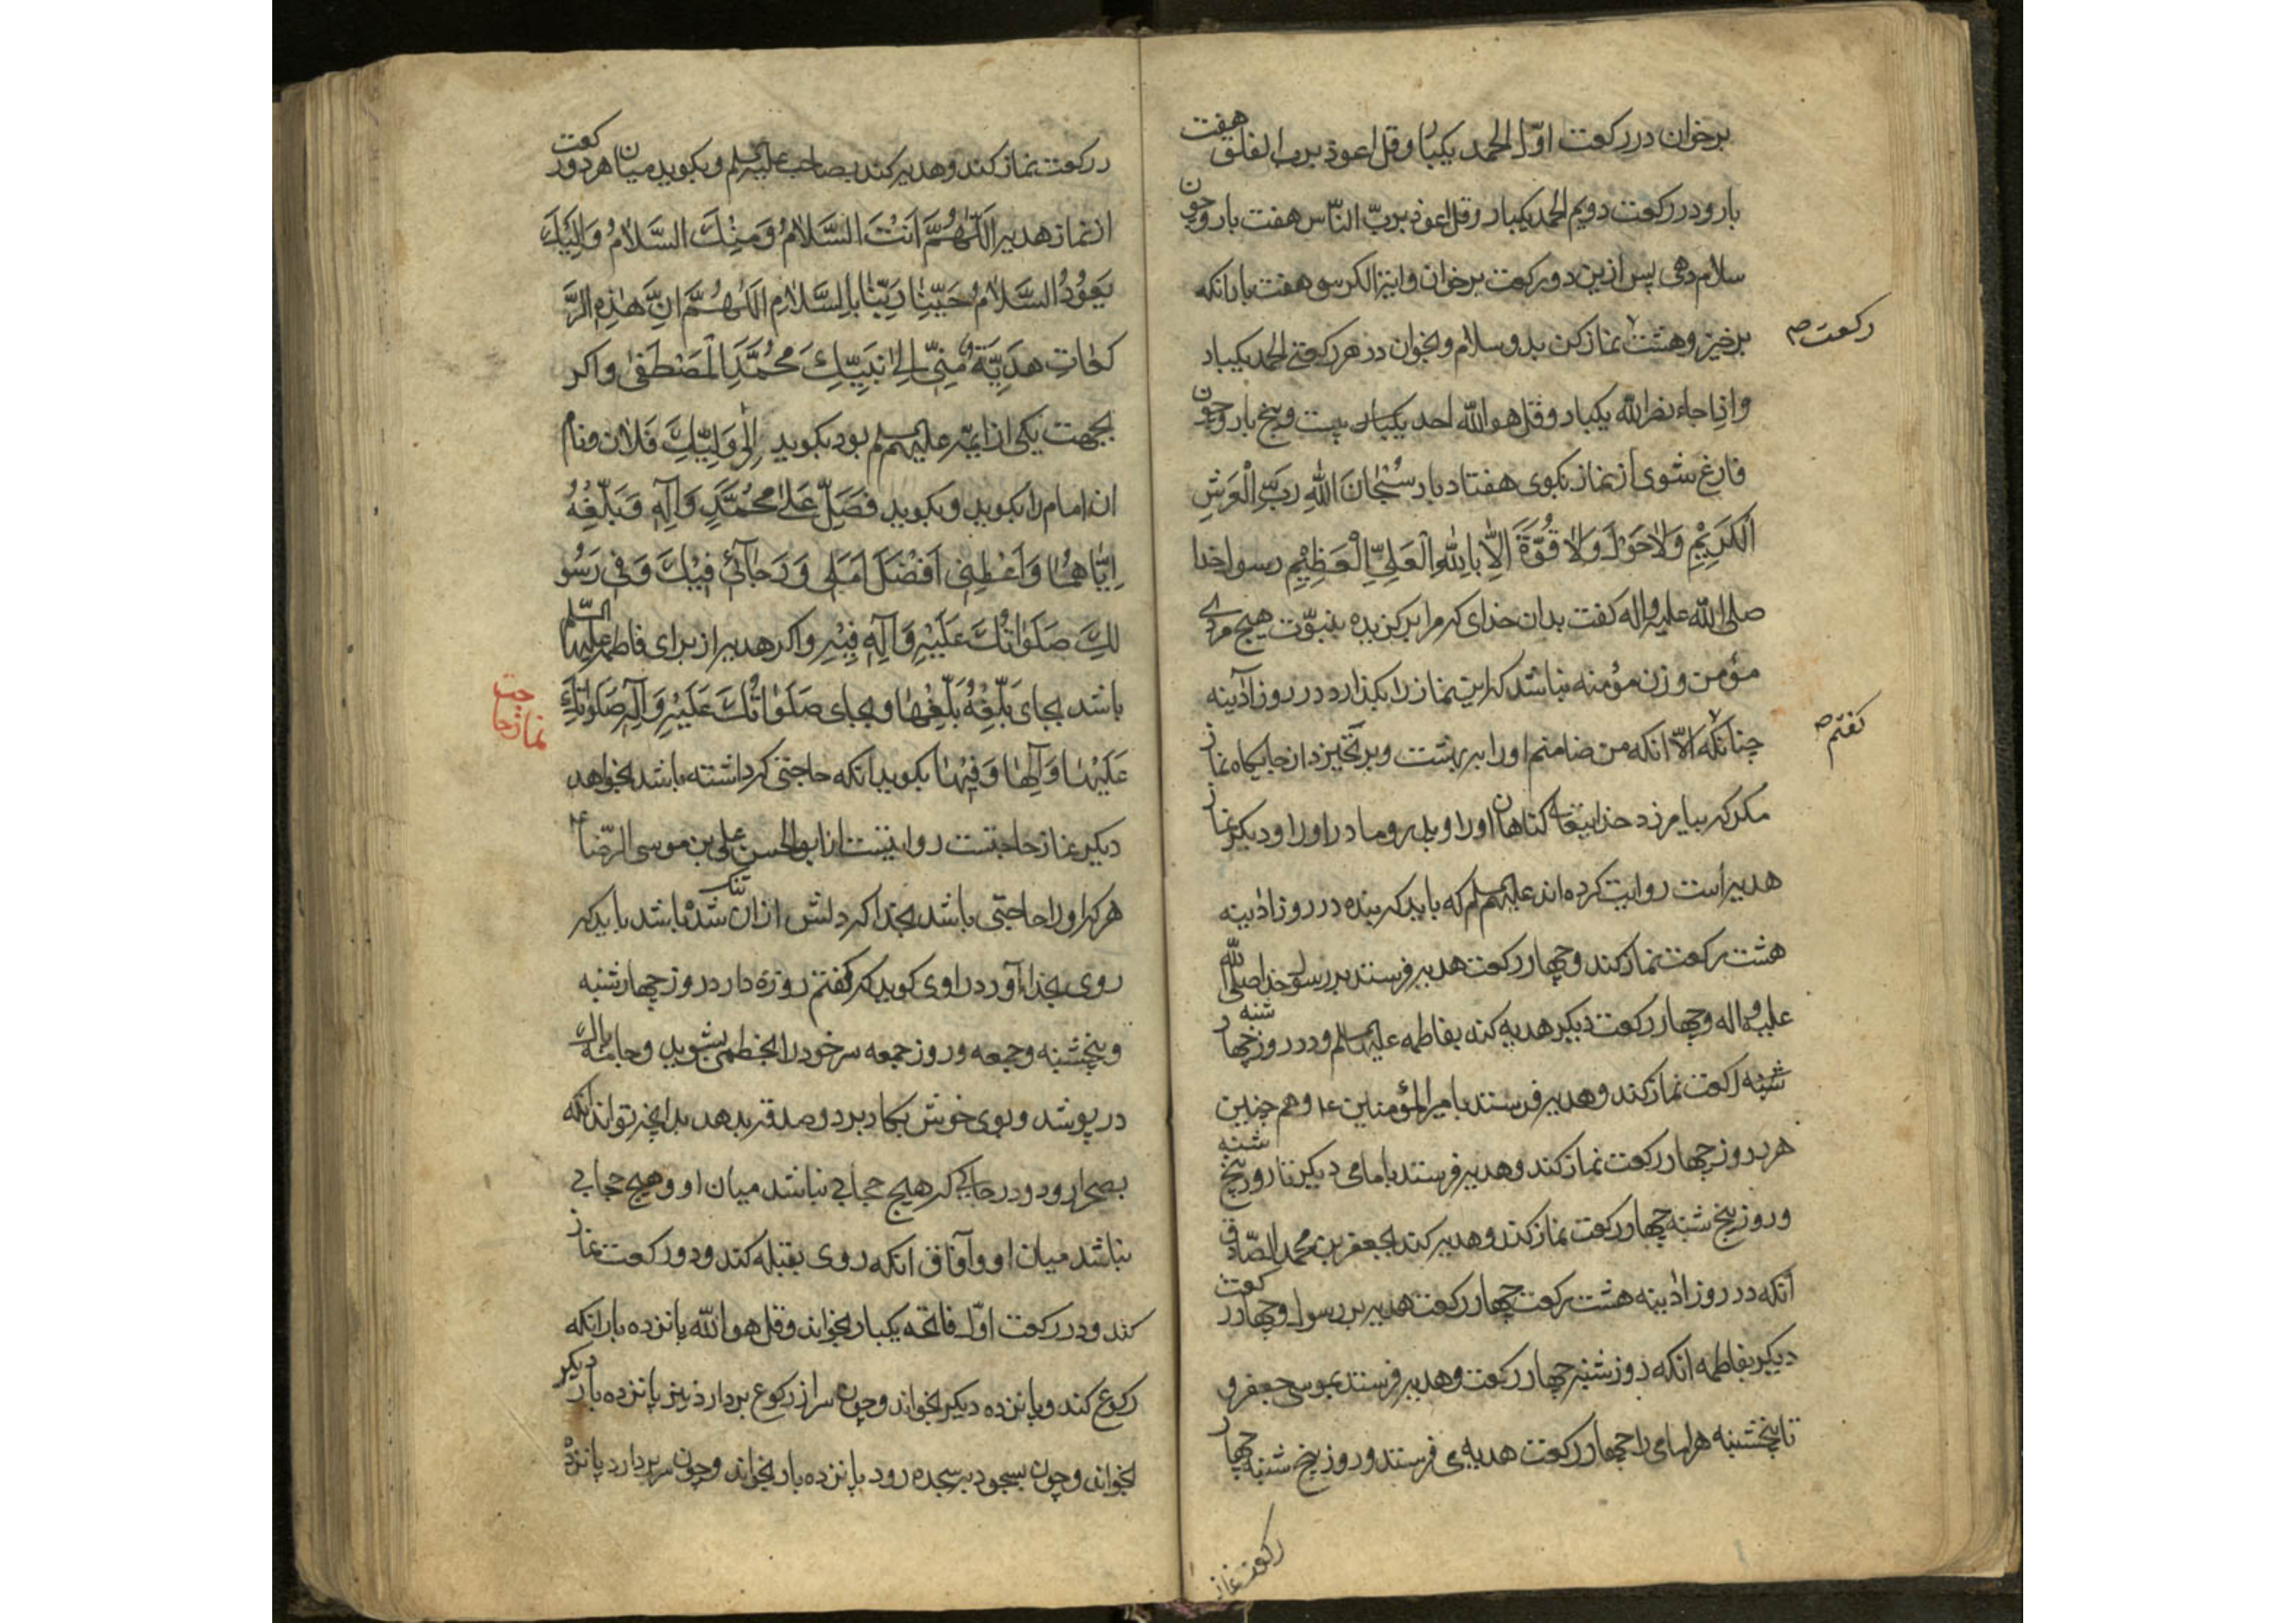 برخوان در رکعت اوّل الحمد یکبار و قل اعوذ برب الفلق هفت
بار و در رکعت دویم الحمد یکبار و قل اعوذ بربّ النّاس هفت بار و چون
سلام دهی پس ازین دو رکعت برخوان و ایة الکرسی هفت بار انکه
برخیز و هشت نماز کن بدو سلام و بخوان در هر رکعتی الحمد یکبار
رکعت صح
و اذا جاء نصر الله یکبار و قل هو الله احد یکبار بیست و پنج بار و چون
فارغ شوی از نماز بکوی هفتاد بار سُبْحَانَ اللهِ رَبِّ الْعَرْشِ
الْکَرِیْمِ وَلَا حَوْلَ وَلَا قُوَّةَ اِلَّا بِاللهِ الْعَلِیِّ الْعَظِیْمِ رسول خدا
صلی الله علیه و اله کفت بدان خدای که مرا برکزیده بنبوّت هیچ مردی
مؤمن و زن مؤمنه نباشد که این نماز را بکذارد در روز آدینه
چنانکه الّا انکه من ضامنم او را ببهشت و برنخیزد از جایکاه نماز
کفتم صح
مکر که بیامرزد خدایتعالی کناهان او را و پدر و مادر او را و دیکر نماز
هدیه است روایت کرده اند علیهم السلم که باید که بنده در روز ادینه
هشت رکعت نماز کند و چهار رکعت هدیه فرستد بررسول خدا صلی الله
علیه و اله و چهار رکعت دیکر هدیه کند بفاطمه علیها السلم و در روز چهار شنبه
شنبه رکعت نماز کند و هدیه فرستد بامیر المؤمنین ع و هم چنین
هر روز چهار رکعت نماز کند و هدیه فرستد بامامی دیکر تا روز پنج شنبه
و روز پنج شنبه چهار رکعت نماز کند و هدیه کند بجعفر بن محمد الصّادق
انکه در روز ادینه هشت رکعت چهار رکعت هدیه بررسول و چهار رکعت
دیکر بفاطمه انکه روز شنبه چهار رکعت و هدیه فرستد بموسی جعفر و
تا پنجشنبه هر امامی را چهار رکعت هدیه می فرستد و روز پنج شنبه چهار
رکعت نماز
در رکعت نماز کند و هدیه کند بصاحب علیه السلم و بکوید میان هر دو رکعت
از نماز هدیه اَللّٰهُمَّ اَنْتَ السَّلَامُ وَمِنْكَ السَّلَامُ وَاِلَیْكَ
یَعُوْدُ السَّلَامُ حَیِّنَا رَبَّنَا بِالسَّلَامِ اَللّٰهُمَّ اِنَّ هٰذِهِ الرَّ
کَعَاتِ هَدِیَّةٌ مِنِّی اِلٰی نَبِیِّكَ مُحَمَّدٍ الْمُصْطَفٰی و اکر
بجهت یکی از ایمه علیهم السلم بود بکوید اِلٰی وَلِیِّكَ فلان و نام
ان امام را بکوید و بکوید فَصَلِّ عَلٰی مُحَمَّدٍ وَآلِهِ وَبَلِّغْهُ
اِیَّاهُمَا وَاَعْطِنِی اَفْضَلَ اَمَلِی وَرَجَآئِی فِیْكَ وَفِی رَسُو
لِكَ صَلَوَاتُكَ عَلَیْهِ وَآلِهِ فِیْهِ و اکر هدیه از برای فاطمه علیها السّلم
باشد بجای بَلِّغْهُ بَلِّغْهَا و بجای صَلَوَاتُكَ عَلَیْهِ وَآلِهِ صَلَوَاتُكَ
نماز حاجت
عَلَیْهَا وَآلِهَا وَفِیْهَا بکوید انکه حاجتی که داشته باشد بخواهد
دیکر نماز حاجتست روایتست از ابو الحسن علی بن موسی الرّضا ع
هر که او را حاجتی باشد بخدا که دلش از ان تنک شده باشد باید که
روی بخدا آورد راوی کوید که کفتم روزه دارد روز چهار شنبه
و پنجشنبه و جمعه و روز جمعه سر خود را بخطمی بشوید و جامه پاك
در پوشد و بوی خوش بکار برد و صدقه بدهد بدانچه تواند انکه
بصحرا رود و در جایی که هیچ حجابی نباشد میان او و هیچ حجابی
نباشد میان او و آفاق انکه روی بقبله کند و دو رکعت نماز
کند و در رکعت اوّل فاتحه یکبار بخواند و قل هو الله پانزده بار انکه
رکوع کند و پانزده دیکر بخواند و چون سر از رکوع بردارد نیز پانزده بار دیکر
بخواند و چون بسجود بر سجده رود پانزده بار بخواند و چون سر بردارد پانزده